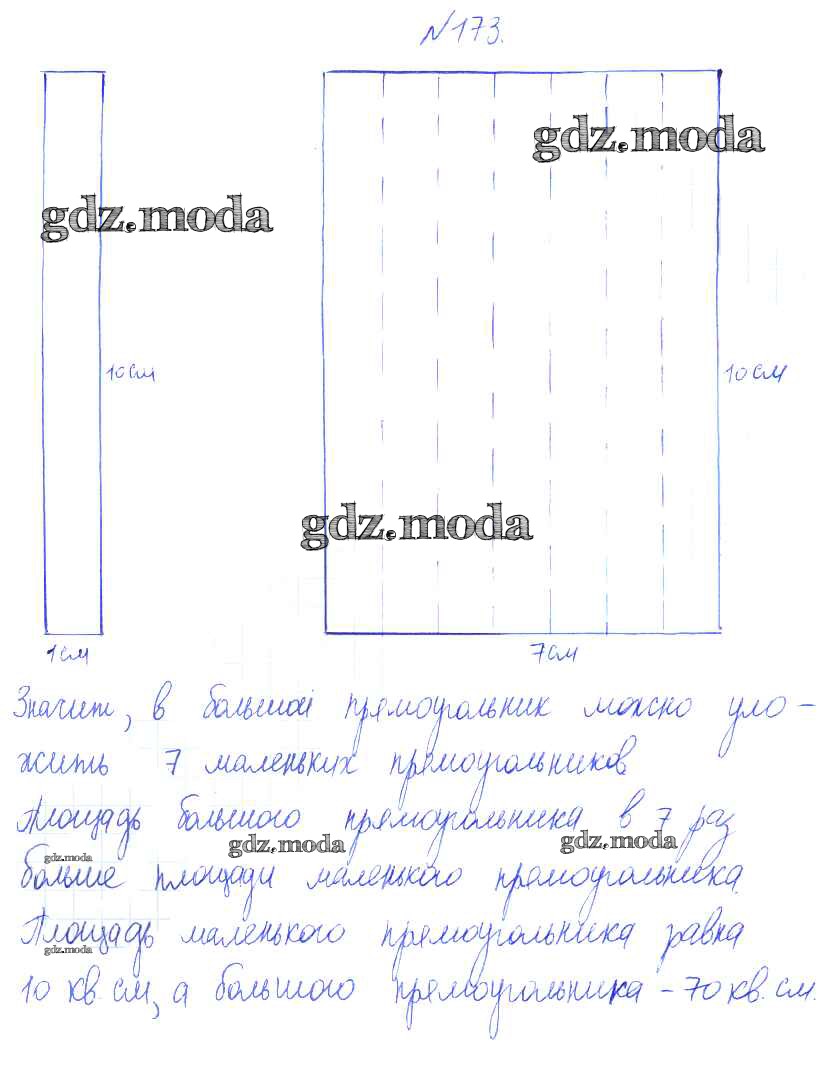 №173.
gdz.moda
gdz.moda
10см
10см
gdz.moda
1см
7см
Значит, в большой прямоугольник можно уло-
жить 7 маленьких прямоугольников
Площадь большого прямоугольника в 7 раз
gdz.moda
gdz.moda
gdz.moda
больше площади маленького прямоугольника.
Площадь маленького прямоугольника равна
gdz.moda
10 кв. см, а большого прямоугольника – 70 кв. см.